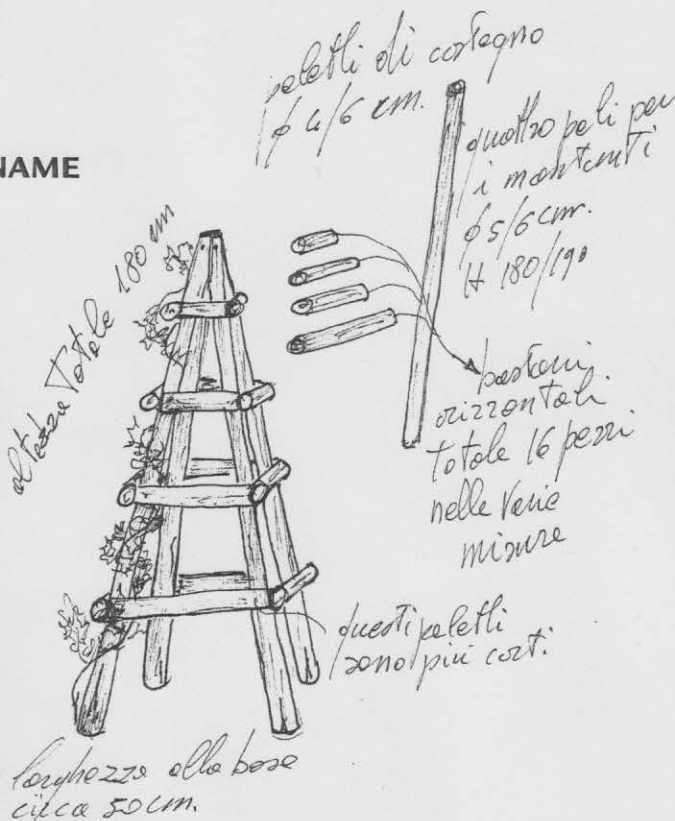 paletti di costegno
φ 4/6 cm.
NAME
quattro pali per
i montanti
φ 5/6 cm.
H 180/190
altezza Totale 180 cm
bastoni
orizzontali
totale 16 pezzi
nelle varie
misure
questi paletti
sono più corti.
larghezza alla base
circa 50 cm.